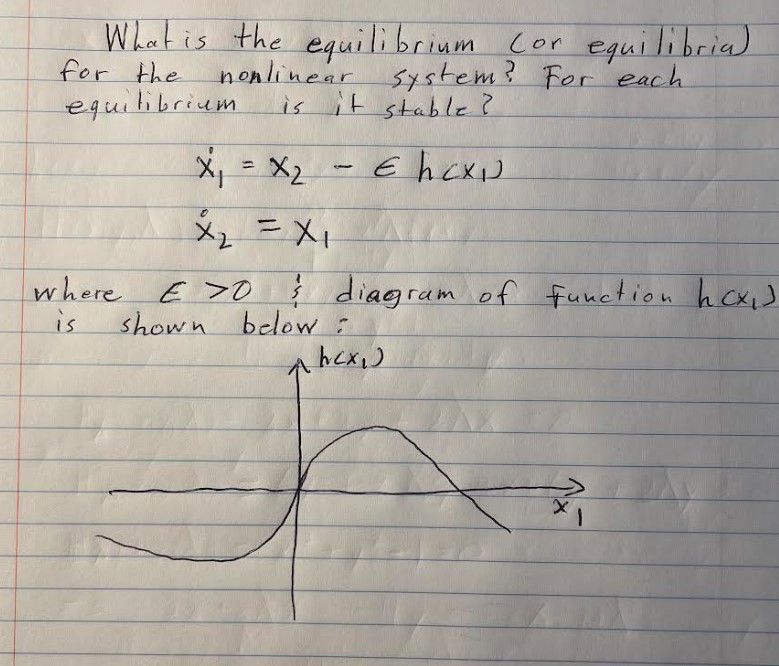 What is the equilibrium (or equilibria)
for the nonlinear system? For each
equilibrium is it stable?
ẋ₁ = x₂ - ϵ h(x₁)
ẋ₂ = x₁
where ϵ >0 & diagram of function h(x₁)
is shown below:
h(x₁)
x₁